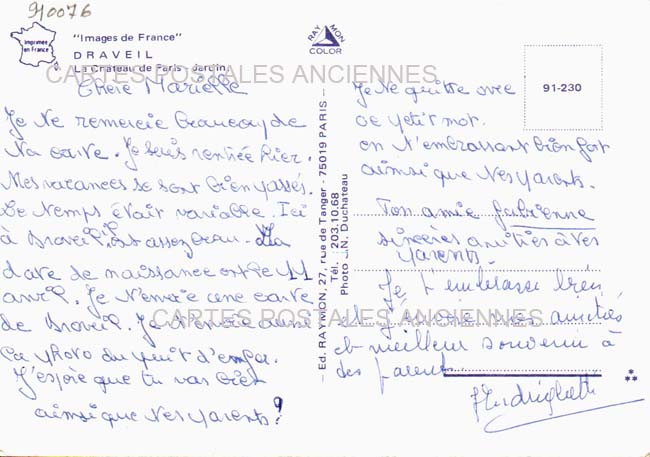 910076
Imprimée
en France
"Images de France"
DRAVEIL
Le Château de Paris-Jardin
CARTES POSTALES ANCIENNES
Chère Marielle
Je te remercie beaucoup de
ta carte. Je suis rentrée hier.
Mes vacances se sont bien passées.
Le temps était variable. Ici
à Draveil, il est assez beau. Ma
date de naissance est le 11
avril. Je t'envoie une carte
de Draveil. Je t'envoie aussi
la photo du
J'espère que tu vas bien
ainsi que tes parents!
CARTES POSTALES ANCIENNES
RAYMON
COLOR
— Ed. RAYMON, 27, rue de Tanger - 75019 PARIS —
Tél. : 203.10.68
Photo J.N. Duchateau
91-230
Je te quitte avec
ce petit mot.
en t'embrassant bien fort
ainsi que tes parents.
Ton amie Fabienne
sincères amitiés à tes
parents.
Je t'embrasse bien
et j'envoie mes amitiés
et meilleur souvenir à
tes parents
*
**